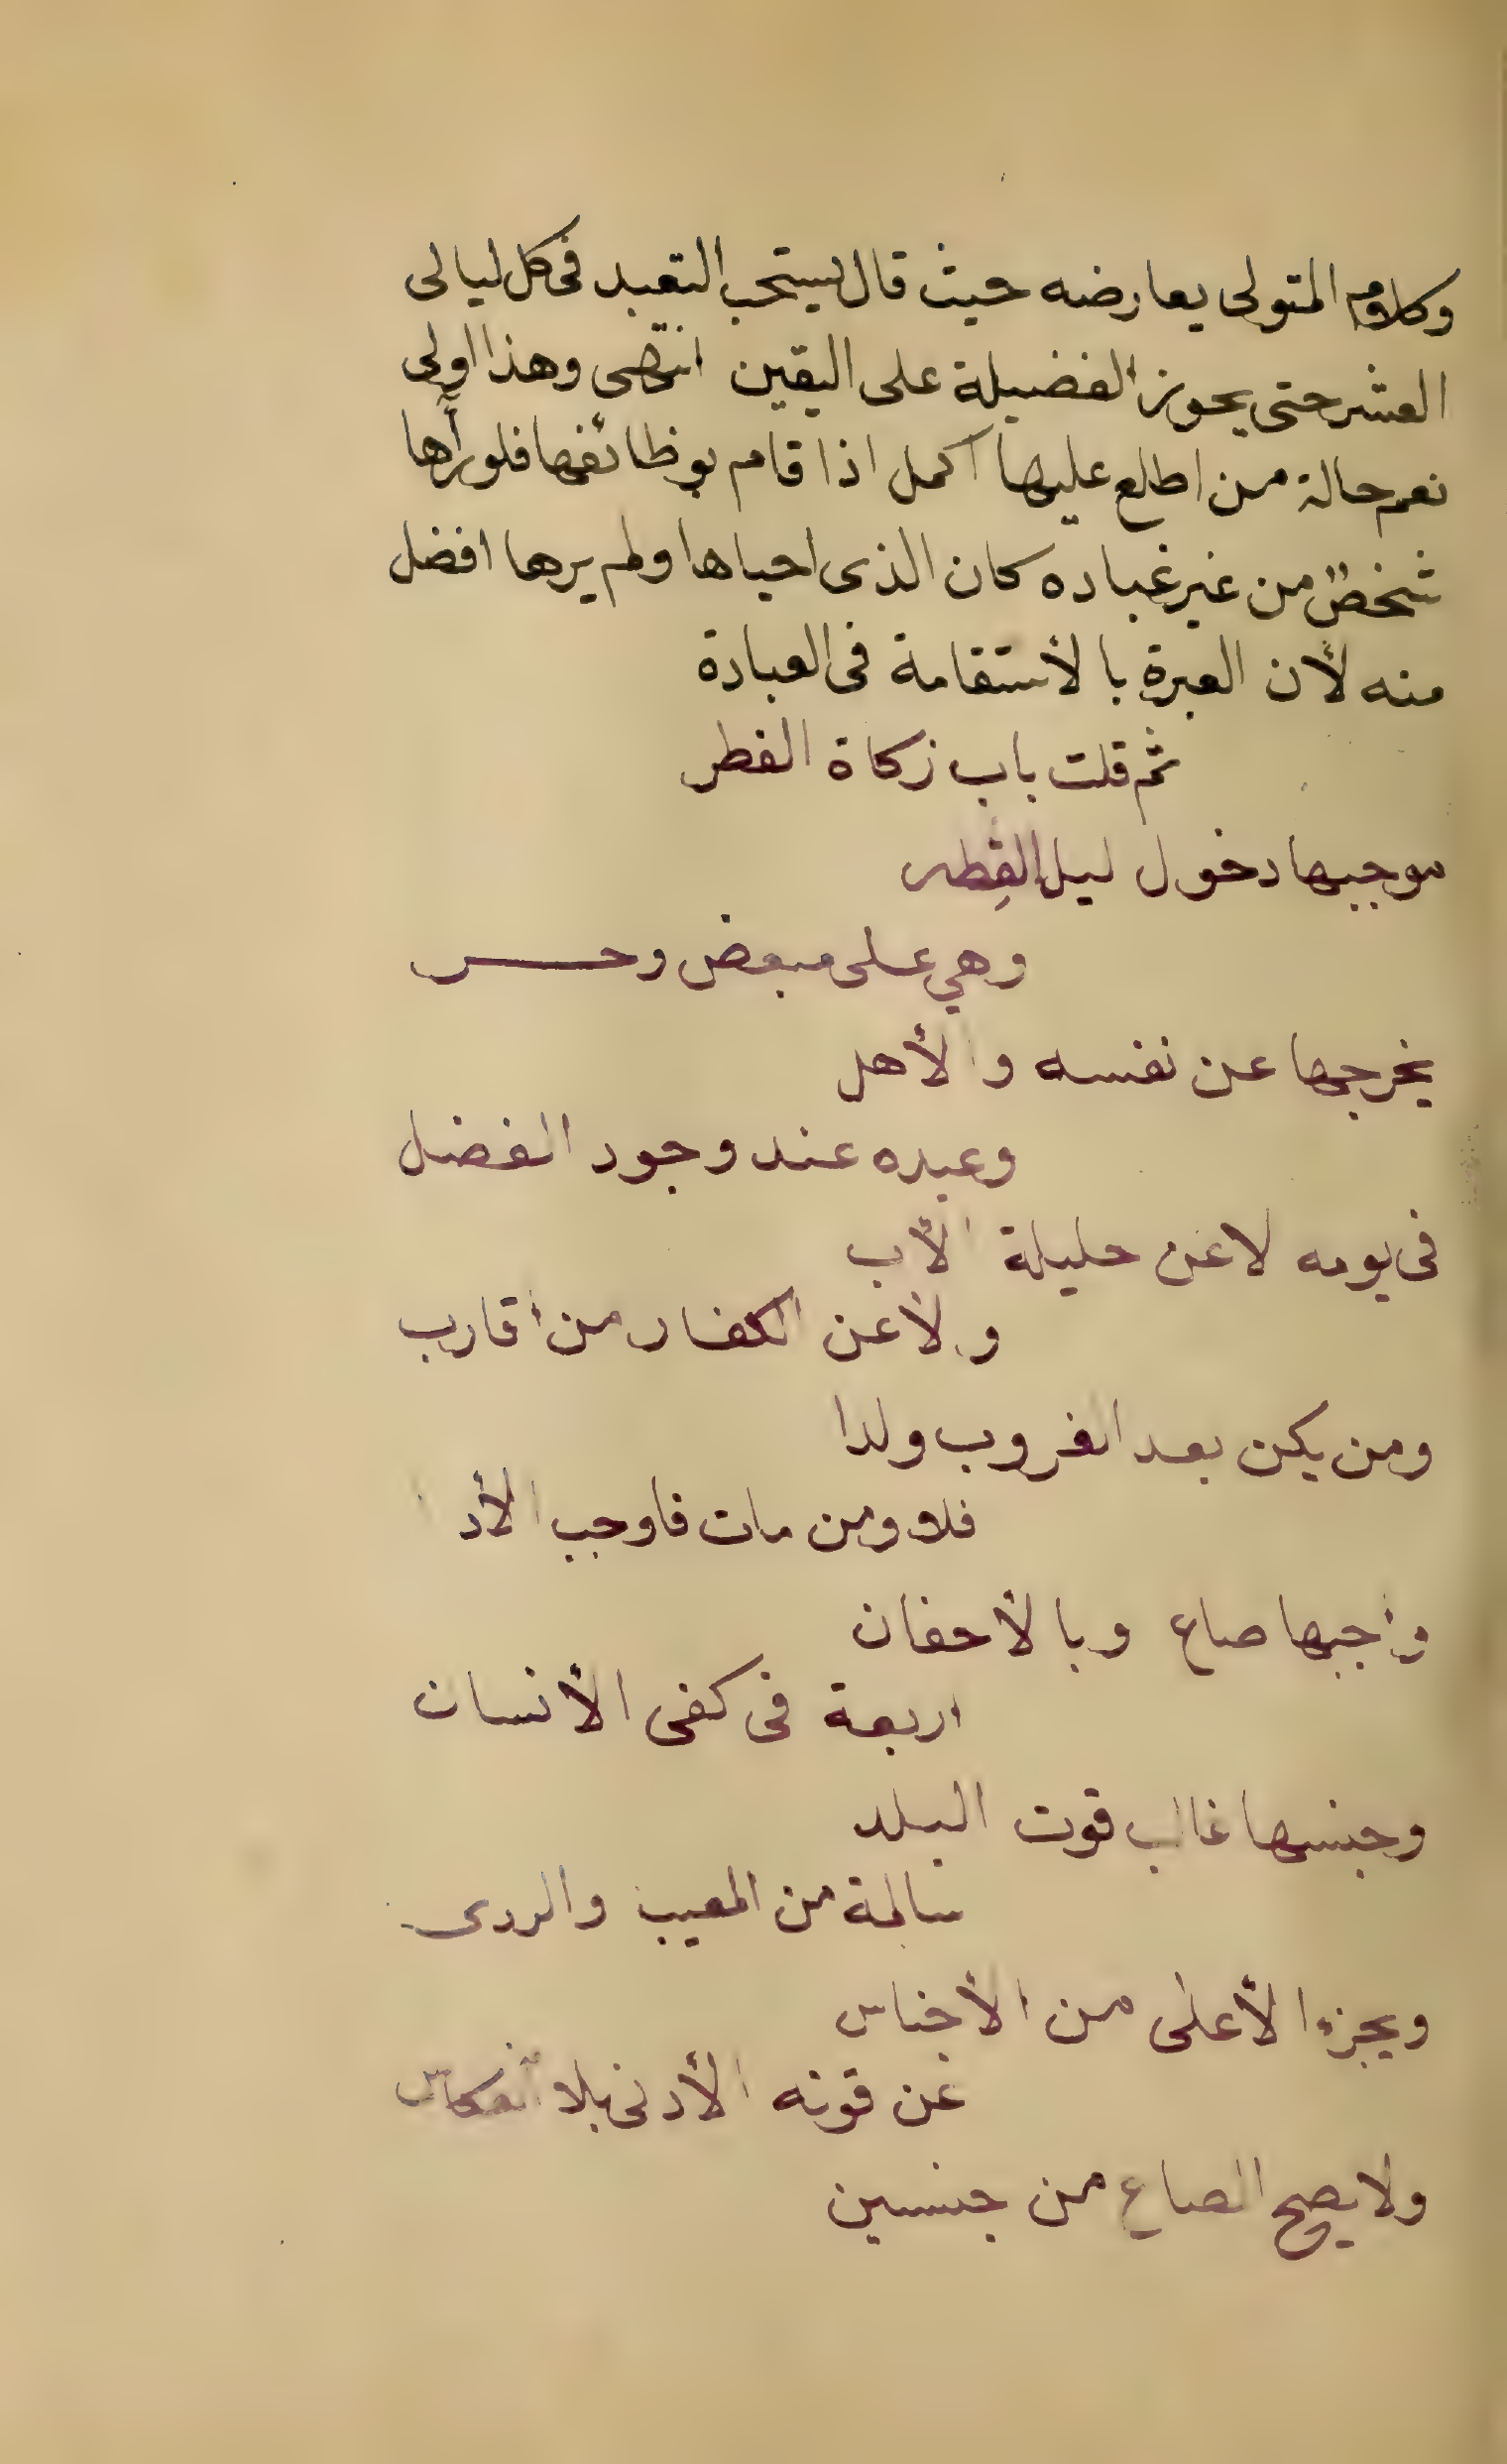 وكلام المتولى يعارضه حيث قال يستحب التعبد فى كل ليالى
العشر حتى يحوز الفضيلة على اليقين انتهى وهذا اولى
نعم حالة من اطلع عليها اكمل اذا قام بوظائفها فلو رآها
شخص من غير عباده كان الذى احياها ولم يرها افضل
منه لأن العبرة بالأستقامة فى العبادة
ثم قلت باب زكاة الفطر
موجبها دخول ليل الفطر
وهي على مبعض وحر
يخرجها عن نفسه والأهل
وعبده عند وجود الفضل
فى يومه لا عن حليلة الأب
ولا عن الكفار من أقارب
ومن يكن بعد الغروب ولدا
فلا ومن مات فاوجب الأدا
واجبها صاع وبالأحفان
اربعة فى كفى الأنسان
وجنسها غالب قوت البلد
سالمة من المعيب والردى
ويجزء الأعلى من الأجناس
عن قوته الأدنى بلا انعكاس
ولا يصح الصاع من جنسين